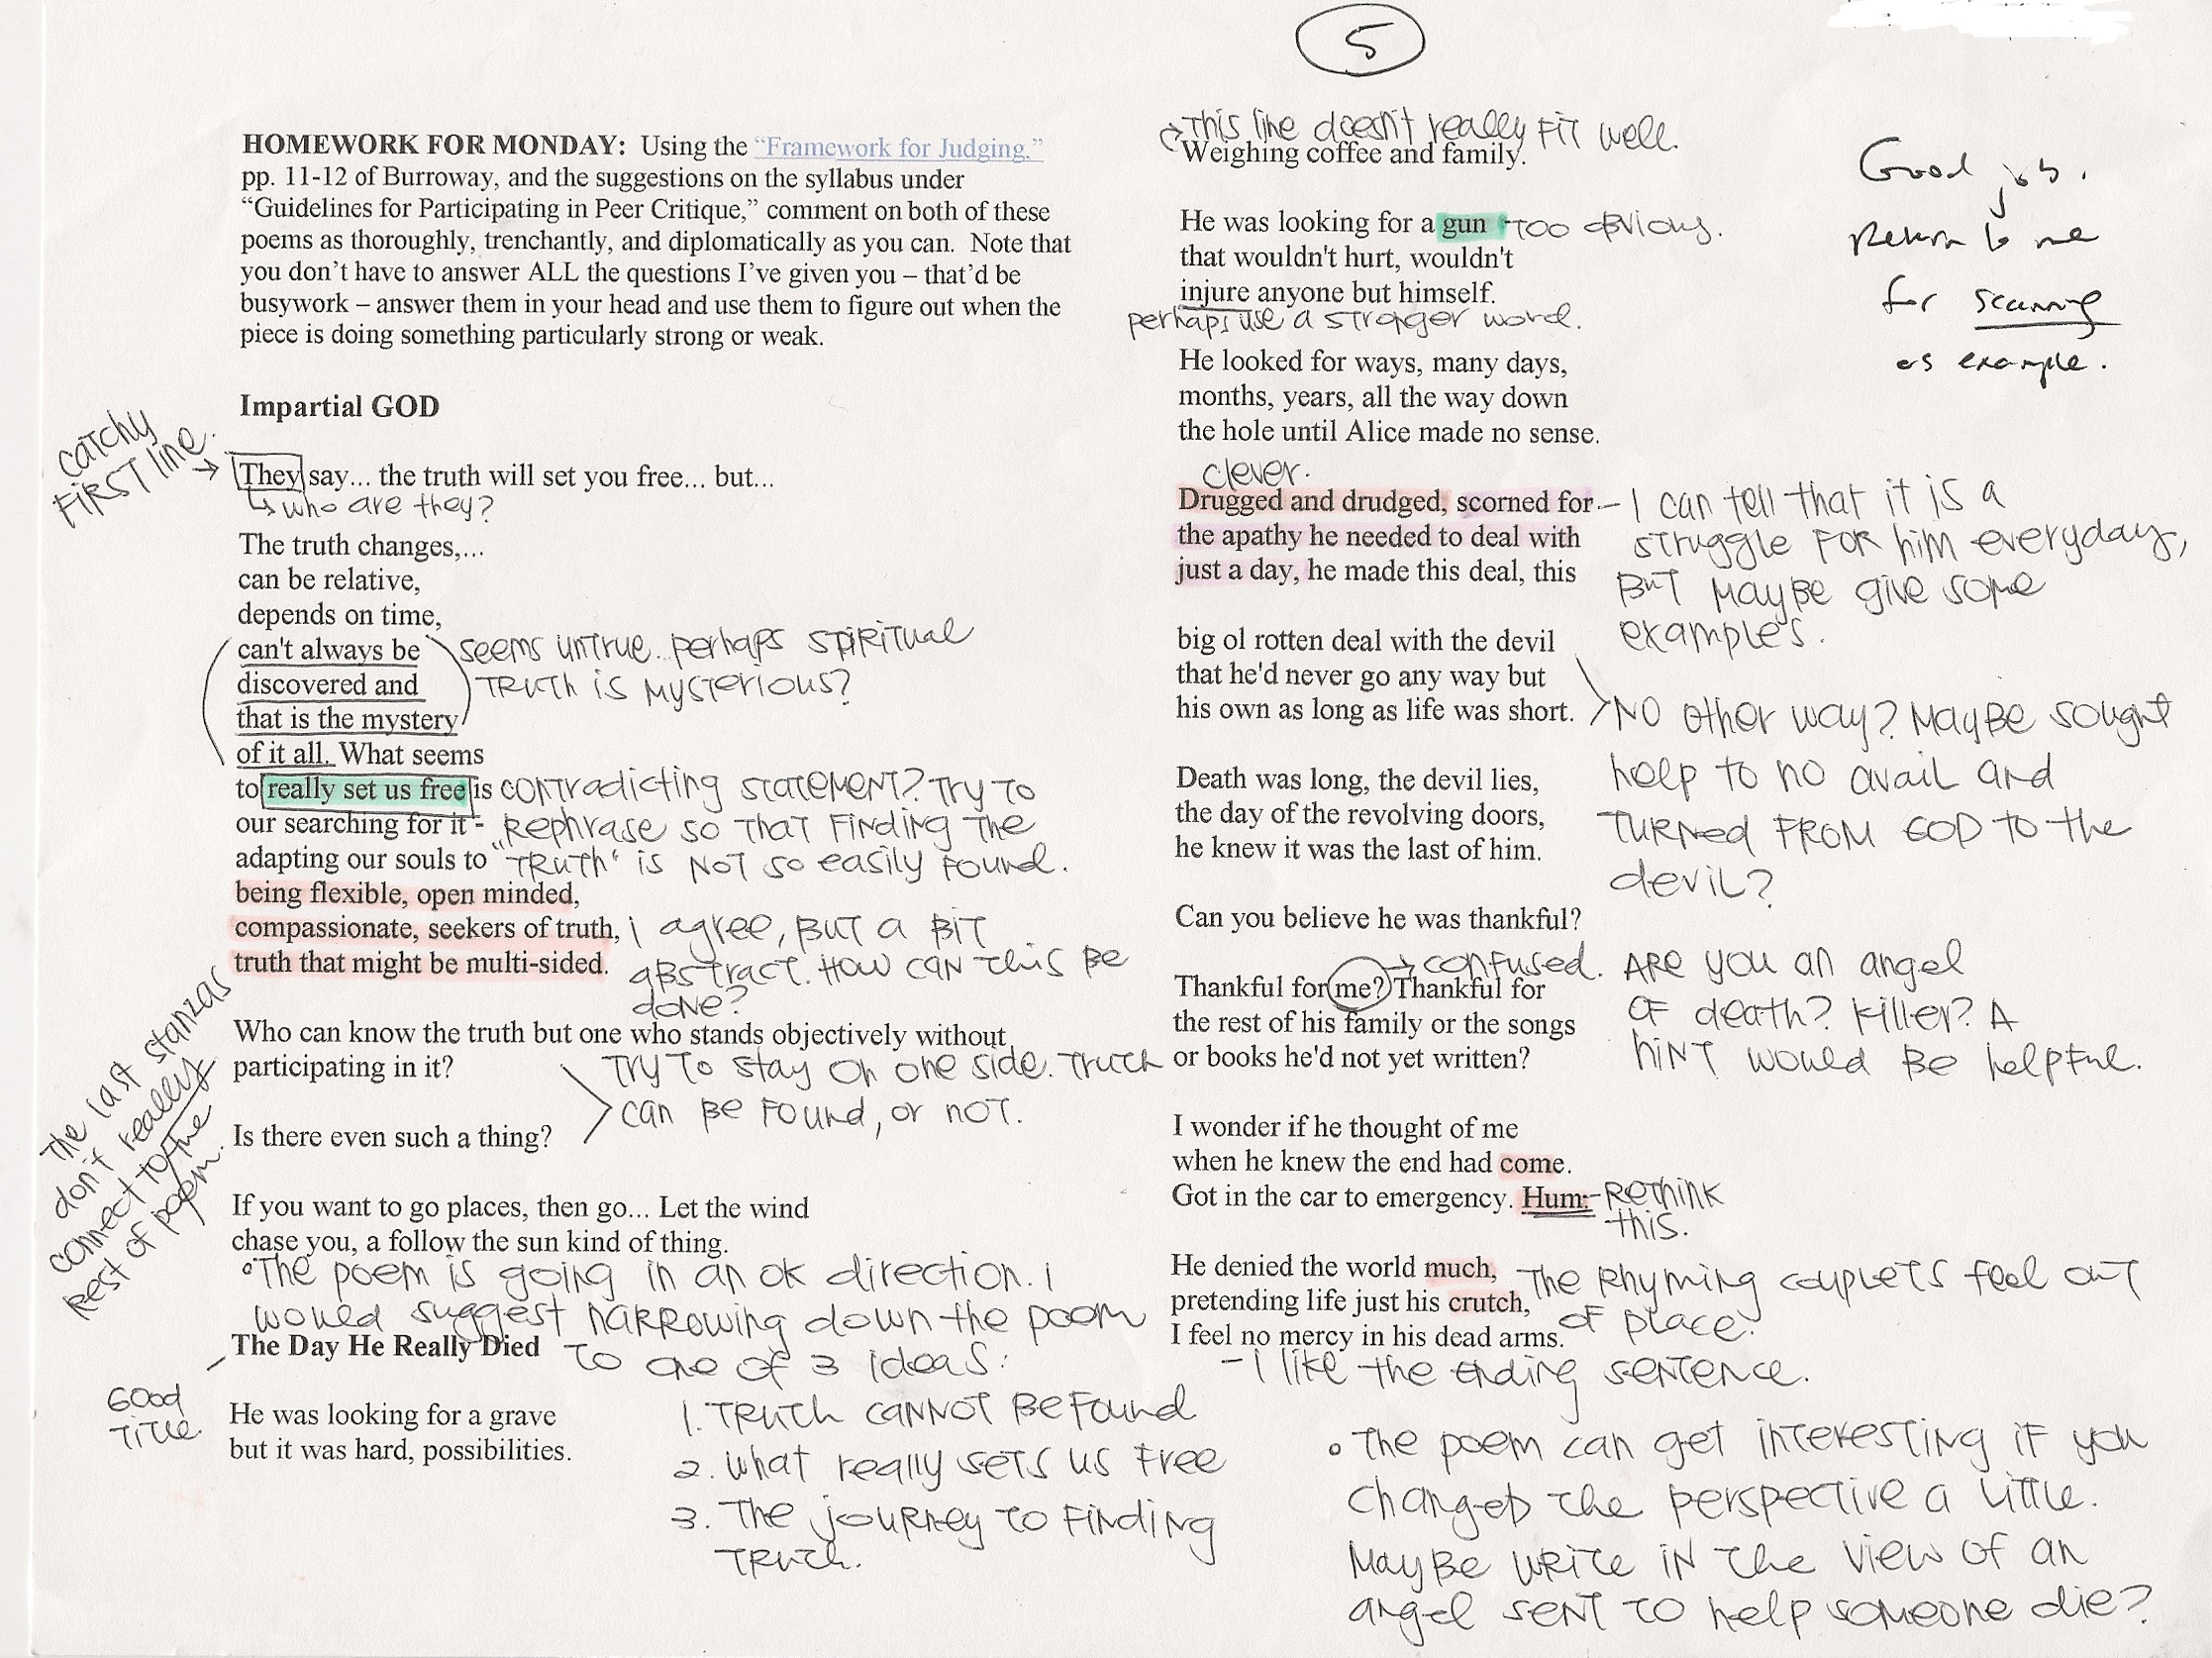 5
HOMEWORK FOR MONDAY: Using the “Framework for Judging,”
pp. 11-12 of Burroway, and the suggestions on the syllabus under
“Guidelines for Participating in Peer Critique,” comment on both of these
poems as thoroughly, trenchantly, and diplomatically as you can. Note that
you don’t have to answer ALL the questions I’ve given you – that’d be
busywork – answer them in your head and use them to figure out when the
piece is doing something particularly strong or weak.
Impartial GOD
Catchy
First line.
They say... the truth will set you free... but...
who are they?
The truth changes,...
can be relative,
depends on time,
can't always be
discovered and
that is the mystery
of it all. What seems
seems untrue. perhaps spiritual
truth is mysterious?
to really set us free is
our searching for it -
adapting our souls to
contradicting statement? Try to
Rephrase so that finding the
"truth" is not so easily found.
being flexible, open minded,
compassionate, seekers of truth,
truth that might be multi-sided.
I agree, but a bit
abstract. How can this be
done?
Who can know the truth but one who stands objectively without
participating in it?
Is there even such a thing?
Try to stay on one side. Truth
can be found, or not.
The last stanzas
don't really
connect to the
rest of poem.
If you want to go places, then go... Let the wind
chase you, a follow the sun kind of thing.
The poem is going in an ok direction. I
would suggest narrowing down the poem
to one of 3 ideas:
1. Truth cannot be found
2. what really sets us free
3. The journey to finding
truth.
The Day He Really Died
Good
title.
He was looking for a grave
but it was hard, possibilities.
This line doesn't really fit well.
Weighing coffee and family.
He was looking for a gun
too obvious.
that wouldn't hurt, wouldn't
injure anyone but himself.
perhaps use a stronger word.
He looked for ways, many days,
months, years, all the way down
the hole until Alice made no sense.
clever.
Drugged and drudged, scorned for
the apathy he needed to deal with
just a day, he made this deal, this
I can tell that it is a
struggle for him everyday,
but maybe give some
examples.
big ol rotten deal with the devil
that he'd never go any way but
his own as long as life was short.
No other way? Maybe sought
help to no avail and
turned from God to the
devil?
Death was long, the devil lies,
the day of the revolving doors,
he knew it was the last of him.
Can you believe he was thankful?
confused.
Thankful for me? Thankful for
the rest of his family or the songs
or books he'd not yet written?
Are you an angel
of death? Killer? A
hint would be helpful.
I wonder if he thought of me
when he knew the end had come.
Got in the car to emergency. Hum:
Rethink
this.
He denied the world much,
pretending life just his crutch,
I feel no mercy in his dead arms.
The rhyming couplets feel out
of place.
- I like the ending sentence.
The poem can get interesting if you
changed the perspective a little.
Maybe write in the view of an
angel sent to help someone die?
Good job.
Return to me
for scanning
as example.